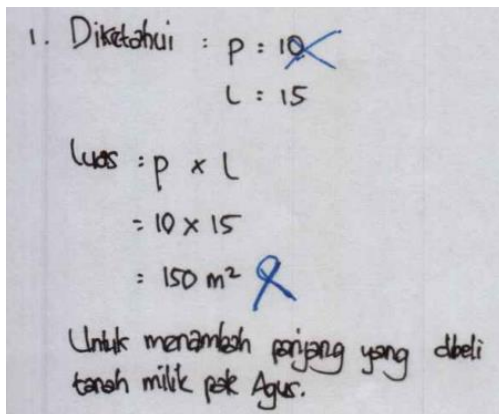 1. Diketahui : P : 10
L : 15
Luas : p x L
= 10 x 15
= 150 m²
Untuk menambah panjang yang dibeli
tanah milik pak Agus.